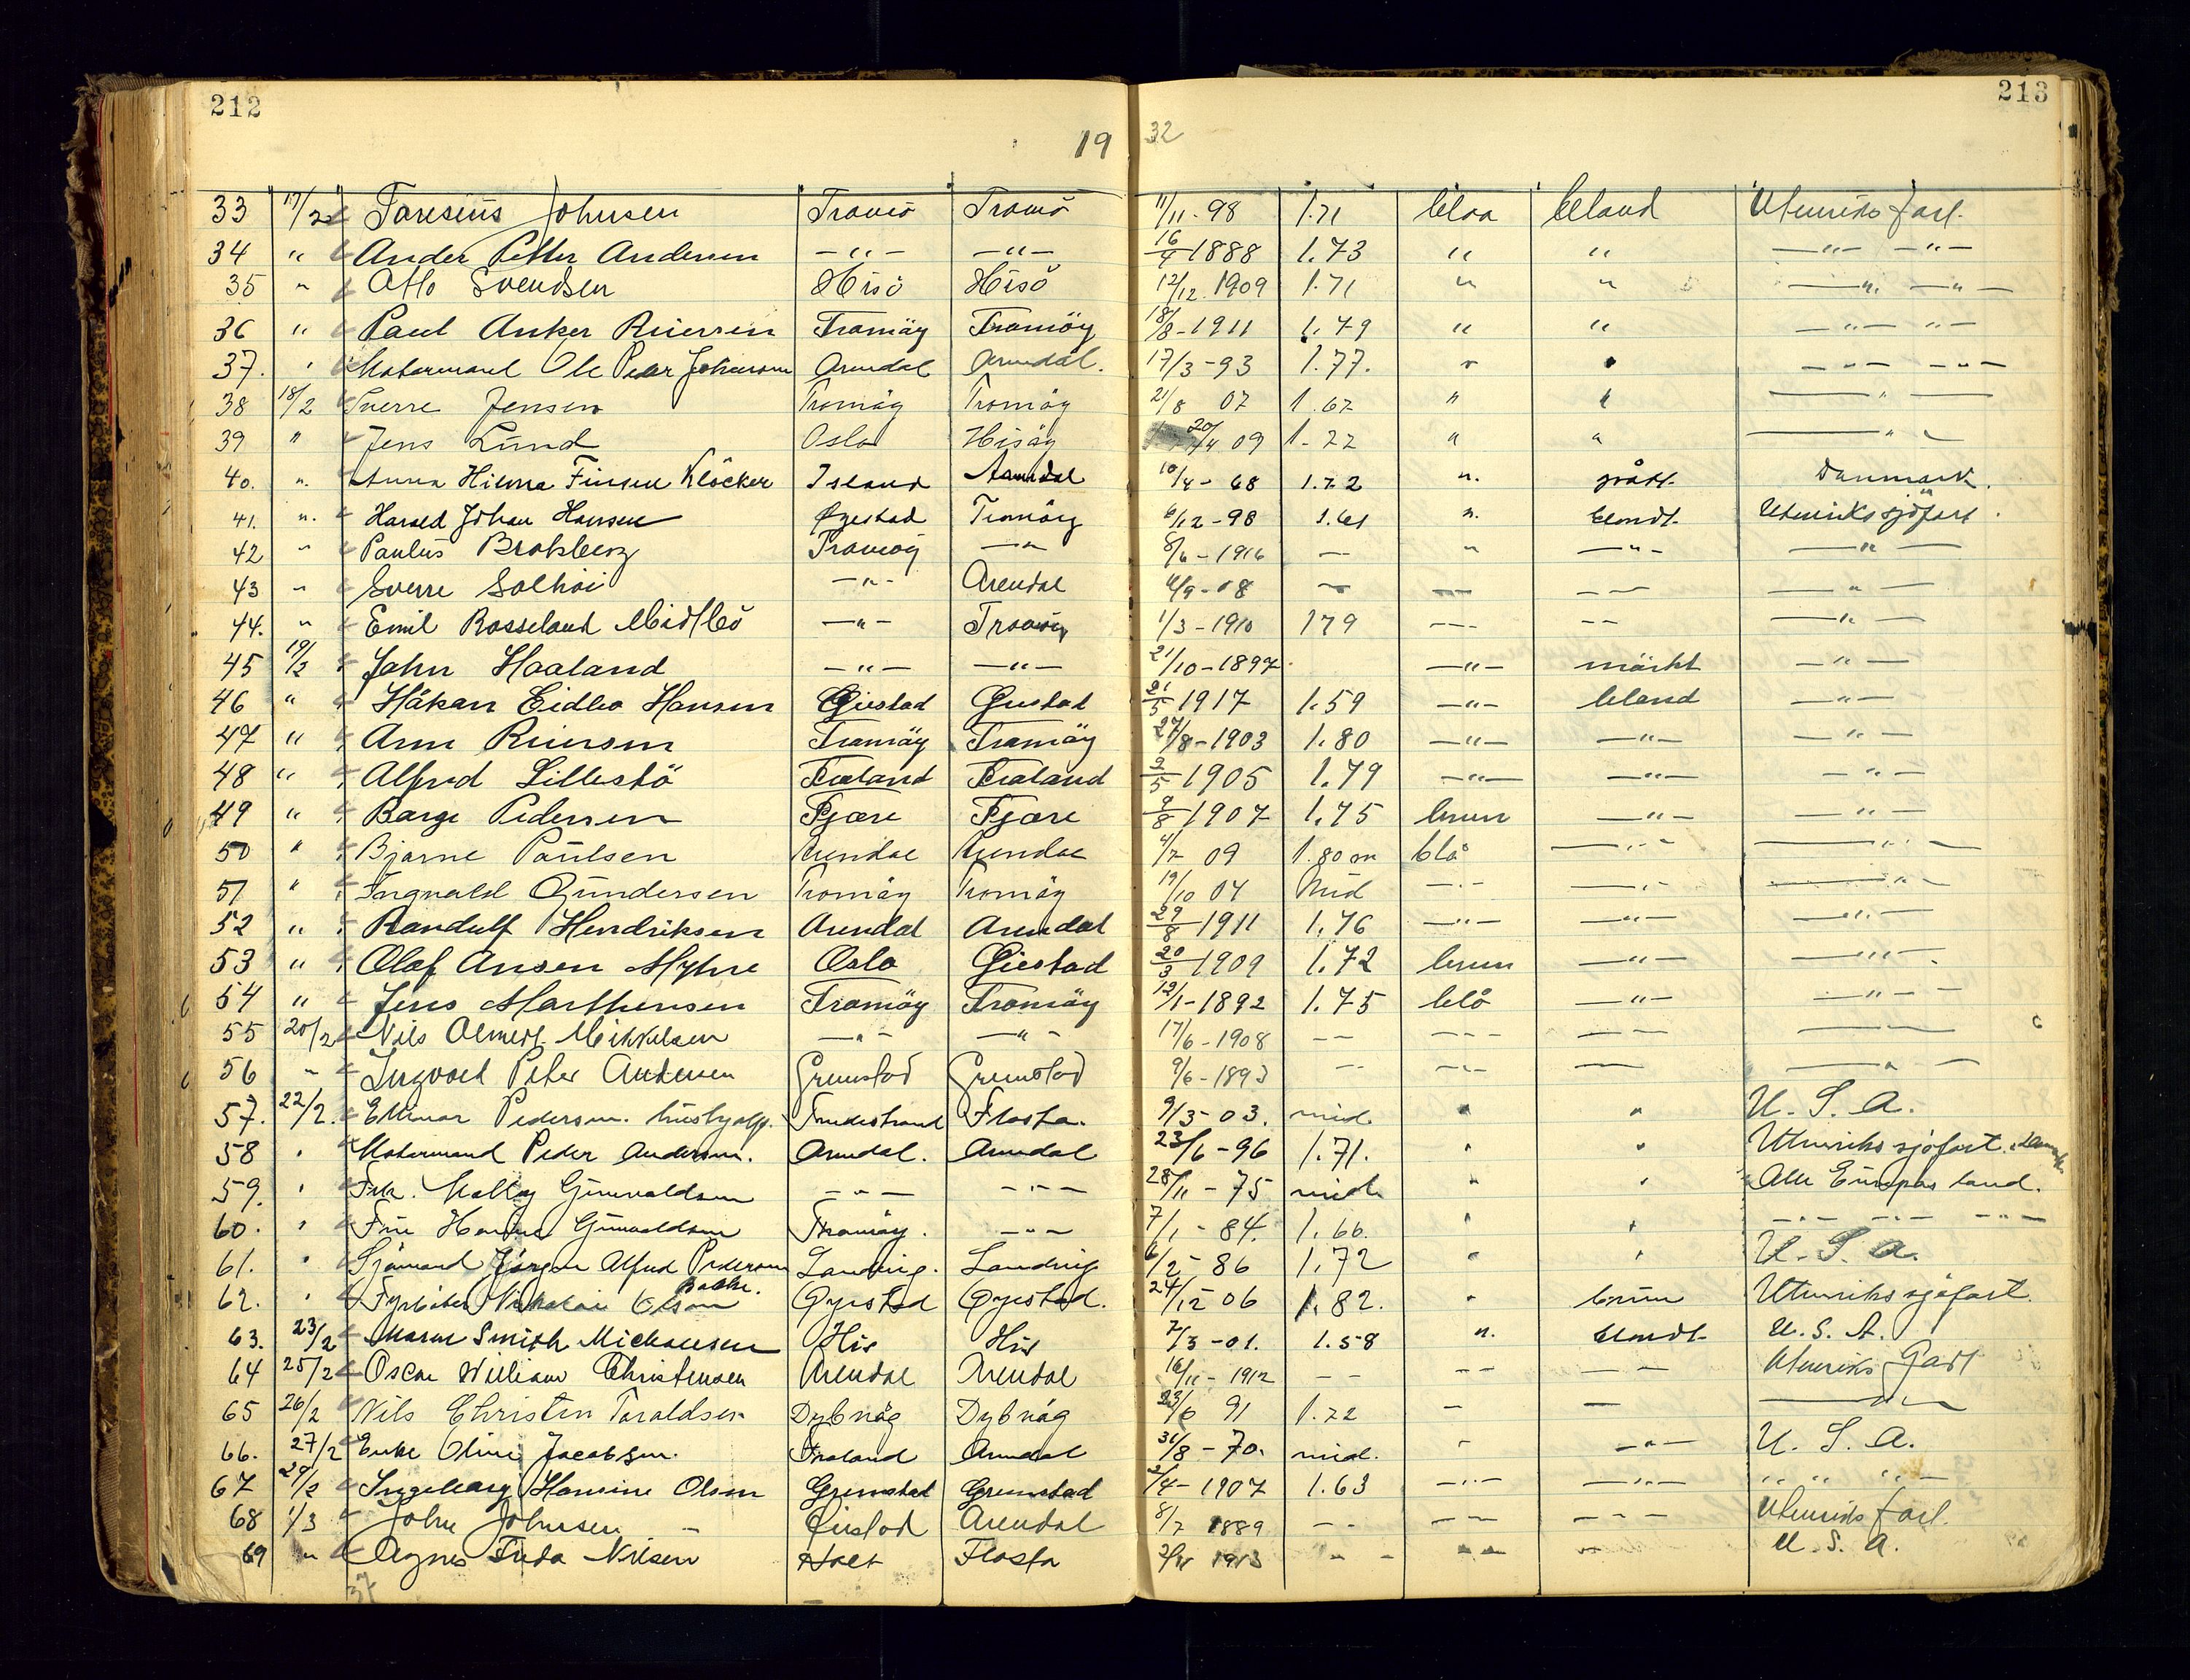 212 213
19 32
33 17/2 Taresius Johnsen Tromö Tromö 11/11-98 1.71 blaa blond Utenriks fart.
34 " Ander Petter Andersen —"— —"— 16/4 1888 1.73 " " —"— —"—
35 " Otto Svendsen Hisö Hisö 12/12 1909 1.71 " " —"— —"—
36 " Paul Anker Riiersen Tromöy Tromöy 18/8-1911 1.79 " " —"— "—
37. " Motormand Ole Peder Johnsen Arendal Arendal. 17/3-93 1.77. " " —"— —"—
38 18/2 Sverre Jensen Tromöy Tromöy 21/8 07 1.67 " " —"—
39 " Jens Lund Oslo Hisöy 20/4 09 1-72 " " —"—
40. ". Anna Hilma Finsen Klöcker Island Arendal 10/4-68 1.72 ". grått Danmark.
41. ". Harald Johan Hansen Öyestad Tromöy 6/12-98 1.61 ". blondt. Utenriks sjöfart.
42 " Paulus Brokberg Tromöy —"— 8/6-1916 — " —"— —"—
43 " Sverre Solhöi —"— Arendal 4/9-08 — — — — —"—
44. " Emil Rosseland Midtbö —"— Tromöy 1/3-1910 179 — — — — —"—
45 19/2 John Haaland —"— —"— 21/10-1897. —"— mörkt —"—
46 " Håkan Eidbo Hansen Öiestad Öiestad 21/5 1917 1.59 —"— blond —"—
47 " Arne Riiersen Tromöy Tromöy 27/8-1903 1.80 —"— —"— —"—
48 " Alfred Lillestö Froland Froland 2/5 1905 1.79 —"— —"— —"—
49 " Borge Pedersen Fjære Fjære 9/8 1907 1.75 brun —"— —"—
50 " Bjarne Paulsen Arendal Arendal 4/7 09 1.80 m blå —"— —"—
51 " Ingvald Gundersen Tromöy Tromöy 19/10 04 Mid —"— —"— —"—
52 " Randulf Hendriksen Arendal Arendal 29/8 1911 1.76 —"— —"— —"—
53 " Olaf Ansen Myhre Oslo Öiestad 20/3 1909 1.72 brun —"— —"—
54 " Jens Marthensen Tromöy Tromöy 12/1-1892 1.75 blå —"— —"—
55 20/2 Nils Olmert Mikkelsen —"— —"— 17/6-1908 — — — — — — —
56 " Ingvald Peter Andersen Grimstad Grimstad 9/6-1893 — — — — — —"—
57. 22/2. Ellinor Pedersen. husbjelp. Tvedestrand Flosta. 9/3-03. mid. " " U. S. A.
58 " Motormand Peder Andersen. Arendal. Arendal 23/6-96 1.71. " " Utenriks sjöfart.
59. " Frk. Molly Gunvaldsen —"— —"— 28/11-75 mid. " " Alle Europas land.
60. " Fru Gunvaldsen Tromöy. —"— 7/1-84. 1.66. " " —"— —"— —"—
61. " Sjömand Jörgen Alfred Pedersen Landvig. Landvig 6/2-86 1.72 " " U. S. A.
62. " Fyrböter Nikolai Olsen Bakke. Öyestad Öyestad. 24/12 06 1.82. " brun Utenriks sjöfart.
63. 23/2 Maren Smith Michaelsen His His 7/3-01. 1.58 ". blondt. U. S. A.
64 25/2 Oscar William Christensen Arendal Arendal 16/11-1912 — — — — — — Utenriks Fart
65 26/2 Nils Christen Taraldsen Dybvåg Dybvåg 23/6 91 1.72 — — —"—
66. 27/2 Enke Oline Jacobsen. Froland Arendal 31/8-70. mid. " —"— U. S. A.
67 29/2 Ingeborg Hansine Olsen Grimstad Grimstad 2/4-1907 1.63 —"— —"— " " " —
68 1/3 John Johnsen — Öiestad Arendal 8/7 1889 — — — — — — — Utenriks fart.
69 " Agnes Frida Nilsen Holt Flosta 1913 — — — — — U. S. A.
37